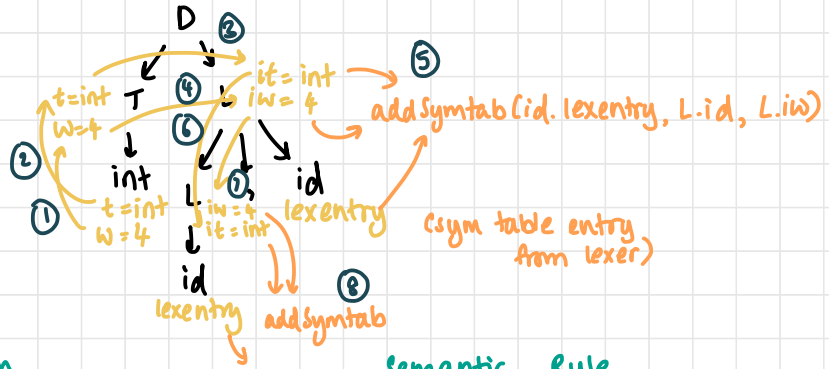 D
3
t=int
T
4
it=int
iw=4
5
addSymtab(id.lexentry, L.id, L.iw)
w=4
6
2
int
L
7
,
id
1
t=int
w=4
iw=4
it=int
lexentry
(sym table entry
from lexer)
id
8
lexentry
addSymtab
semantic Rule